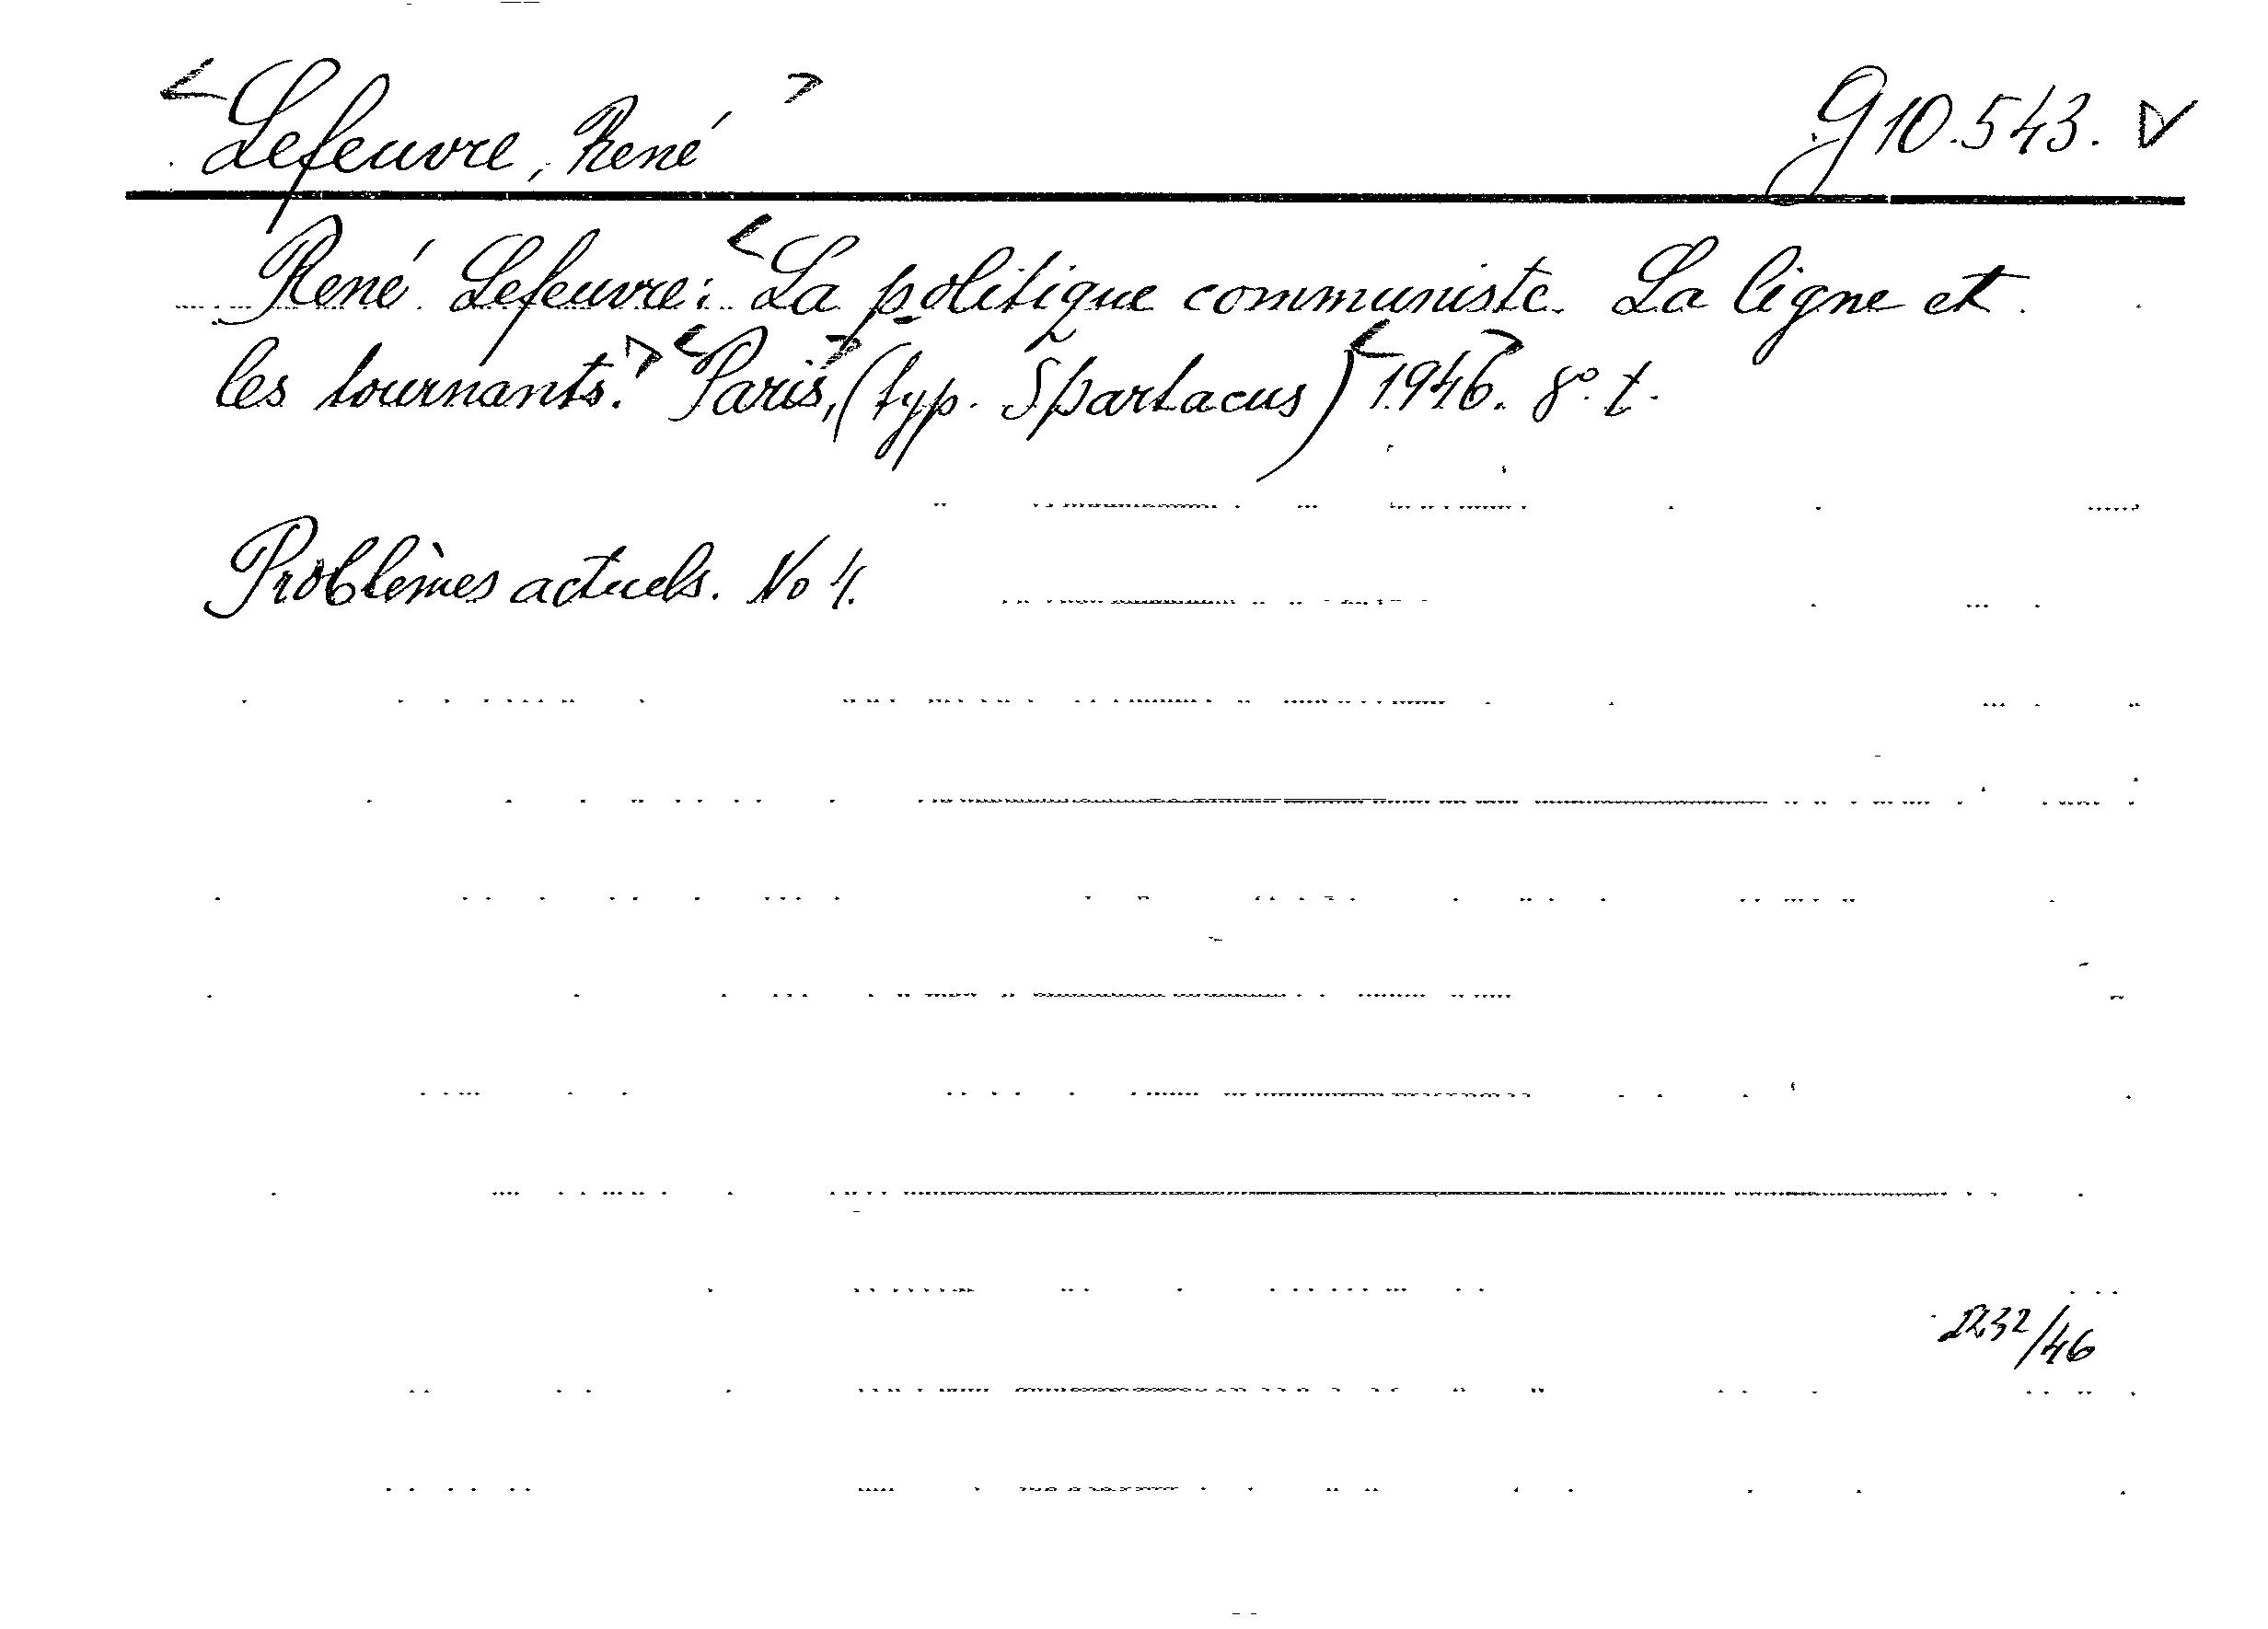 Lefeuvre, René G 10.543.
René Lefeuvre: La politique communiste. La ligne et
les tournants. Paris, (typ. Spartacus) 1946. 8°. t.
Problèmes actuels. No 4.
/46